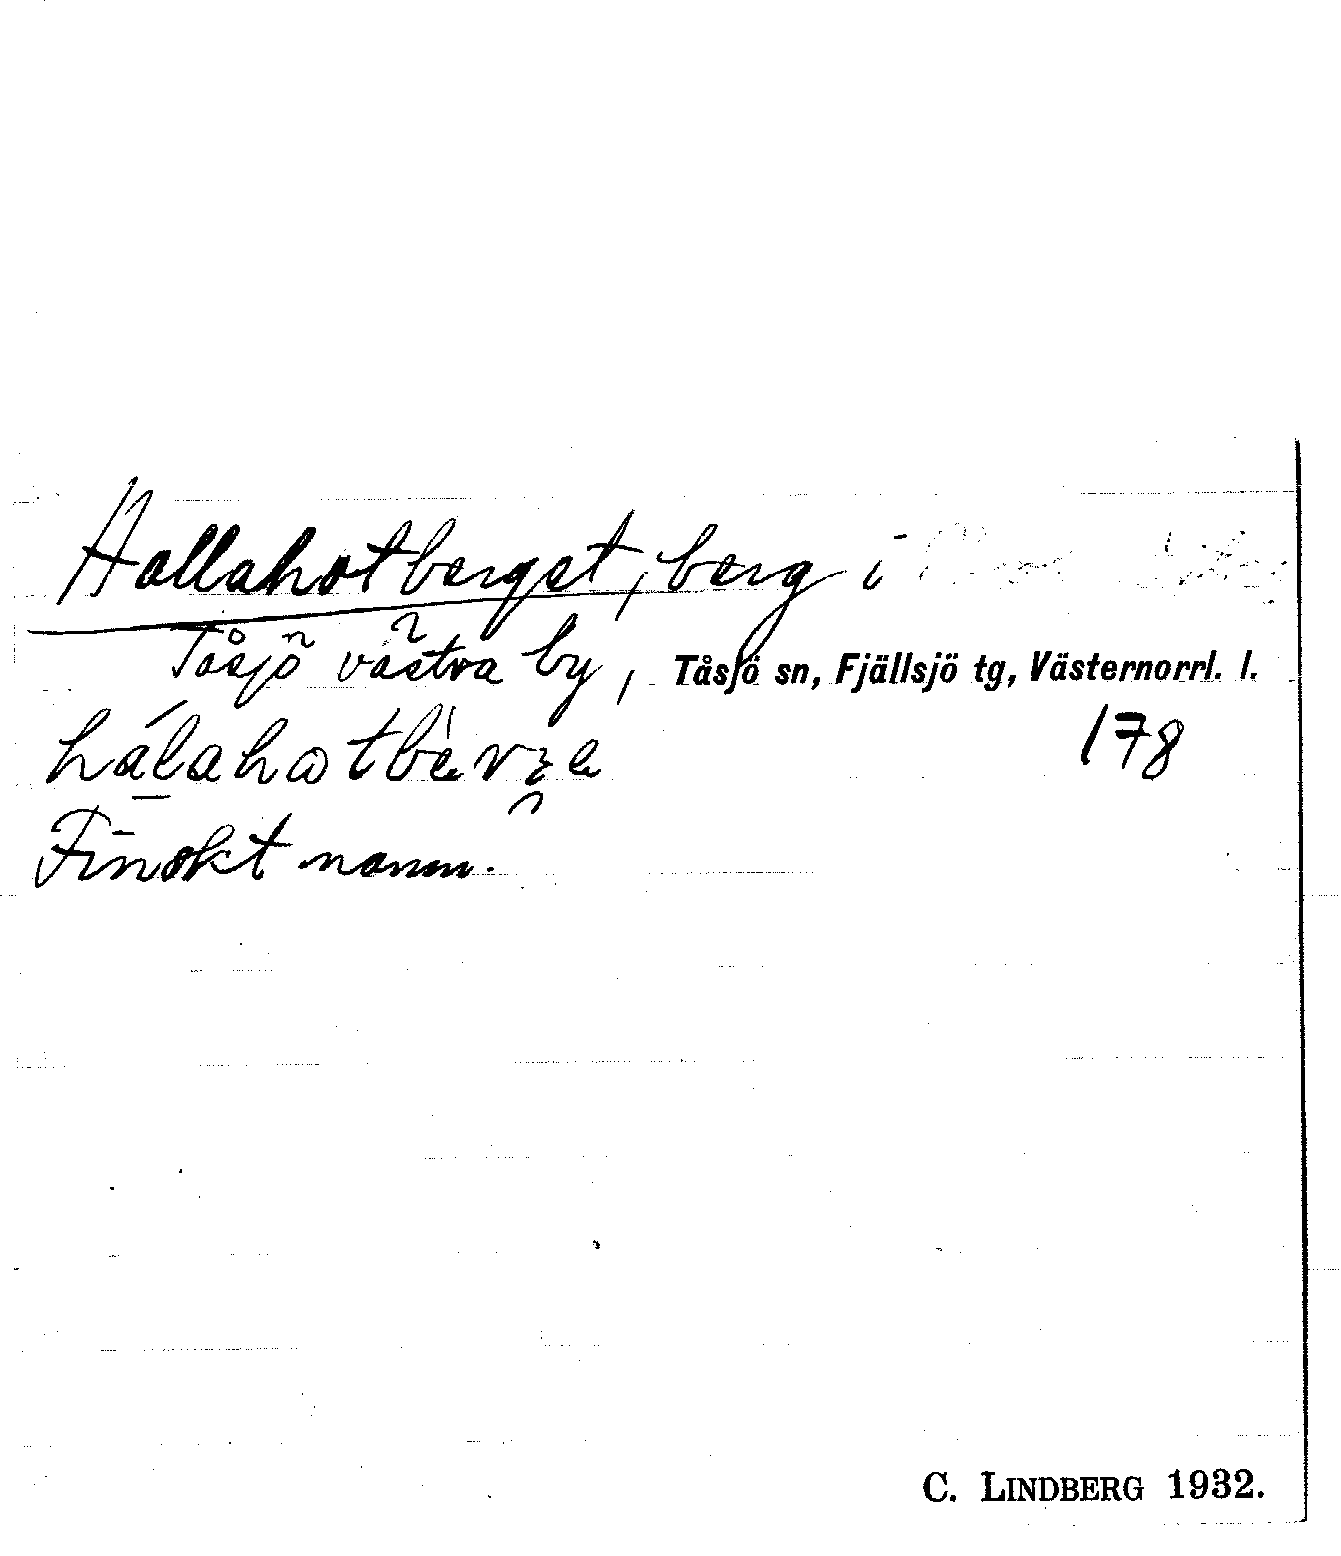 Hallahotberget, berg i
Tåsjö västra by, Tåsjö sn, Fjällsjö tg, Västernorrl. l.
hálahatbèrʒe 178
Finskt namn.
C. LINDBERG 1932.